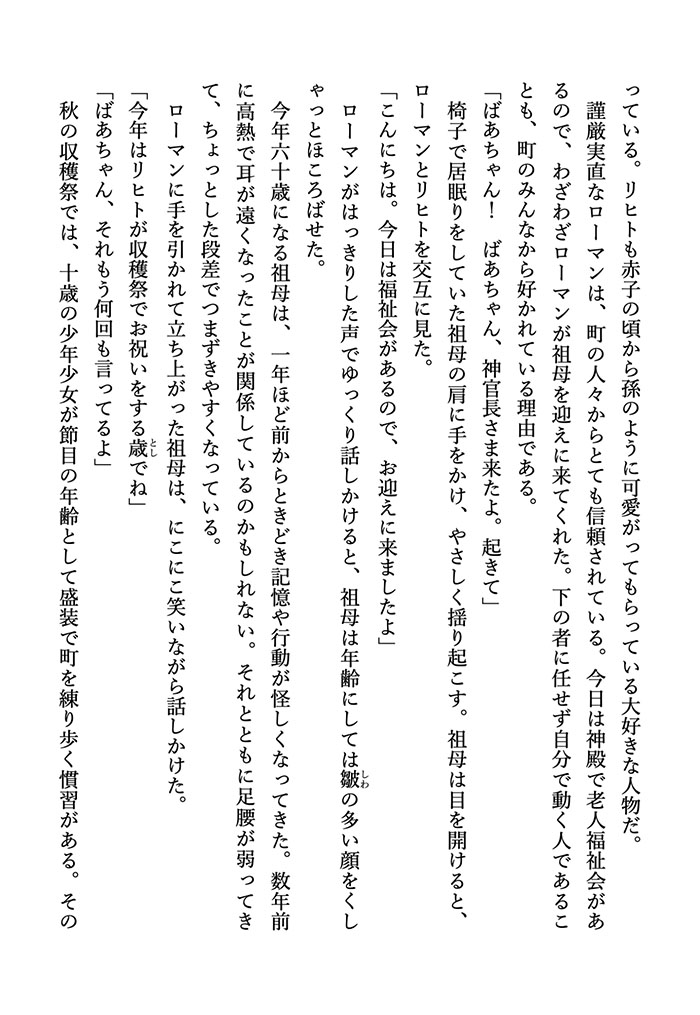 っている。リヒトも赤子の頃から孫のように可愛がってもらっている大好きな人物だ。
　謹厳実直なローマンは、町の人々からとても信頼されている。今日は神殿で老人福祉会があ
るので、わざわざローマンが祖母を迎えに来てくれた。下の者に任せず自分で動く人であるこ
とも、町のみんなから好かれている理由である。
「ばあちゃん！　ばあちゃん、神官長さま来たよ。起きて」
　椅子で居眠りをしていた祖母の肩に手をかけ、やさしく揺り起こす。祖母は目を開けると、
ローマンとリヒトを交互に見た。
「こんにちは。今日は福祉会があるので、お迎えに来ましたよ」
　ローマンがはっきりした声でゆっくり話しかけると、祖母は年齢にしては皺しわの多い顔をくし
ゃっとほころばせた。
　今年六十歳になる祖母は、一年ほど前からときどき記憶や行動が怪しくなってきた。数年前
に高熱で耳が遠くなったことが関係しているのかもしれない。それとともに足腰が弱ってき
て、ちょっとした段差でつまずきやすくなっている。
　ローマンに手を引かれて立ち上がった祖母は、にこにこ笑いながら話しかけた。
「今年はリヒトが収穫祭でお祝いをする歳としでね」
「ばあちゃん、それもう何回も言ってるよ」
　秋の収穫祭では、十歳の少年少女が節目の年齢として盛装で町を練り歩く慣習がある。その